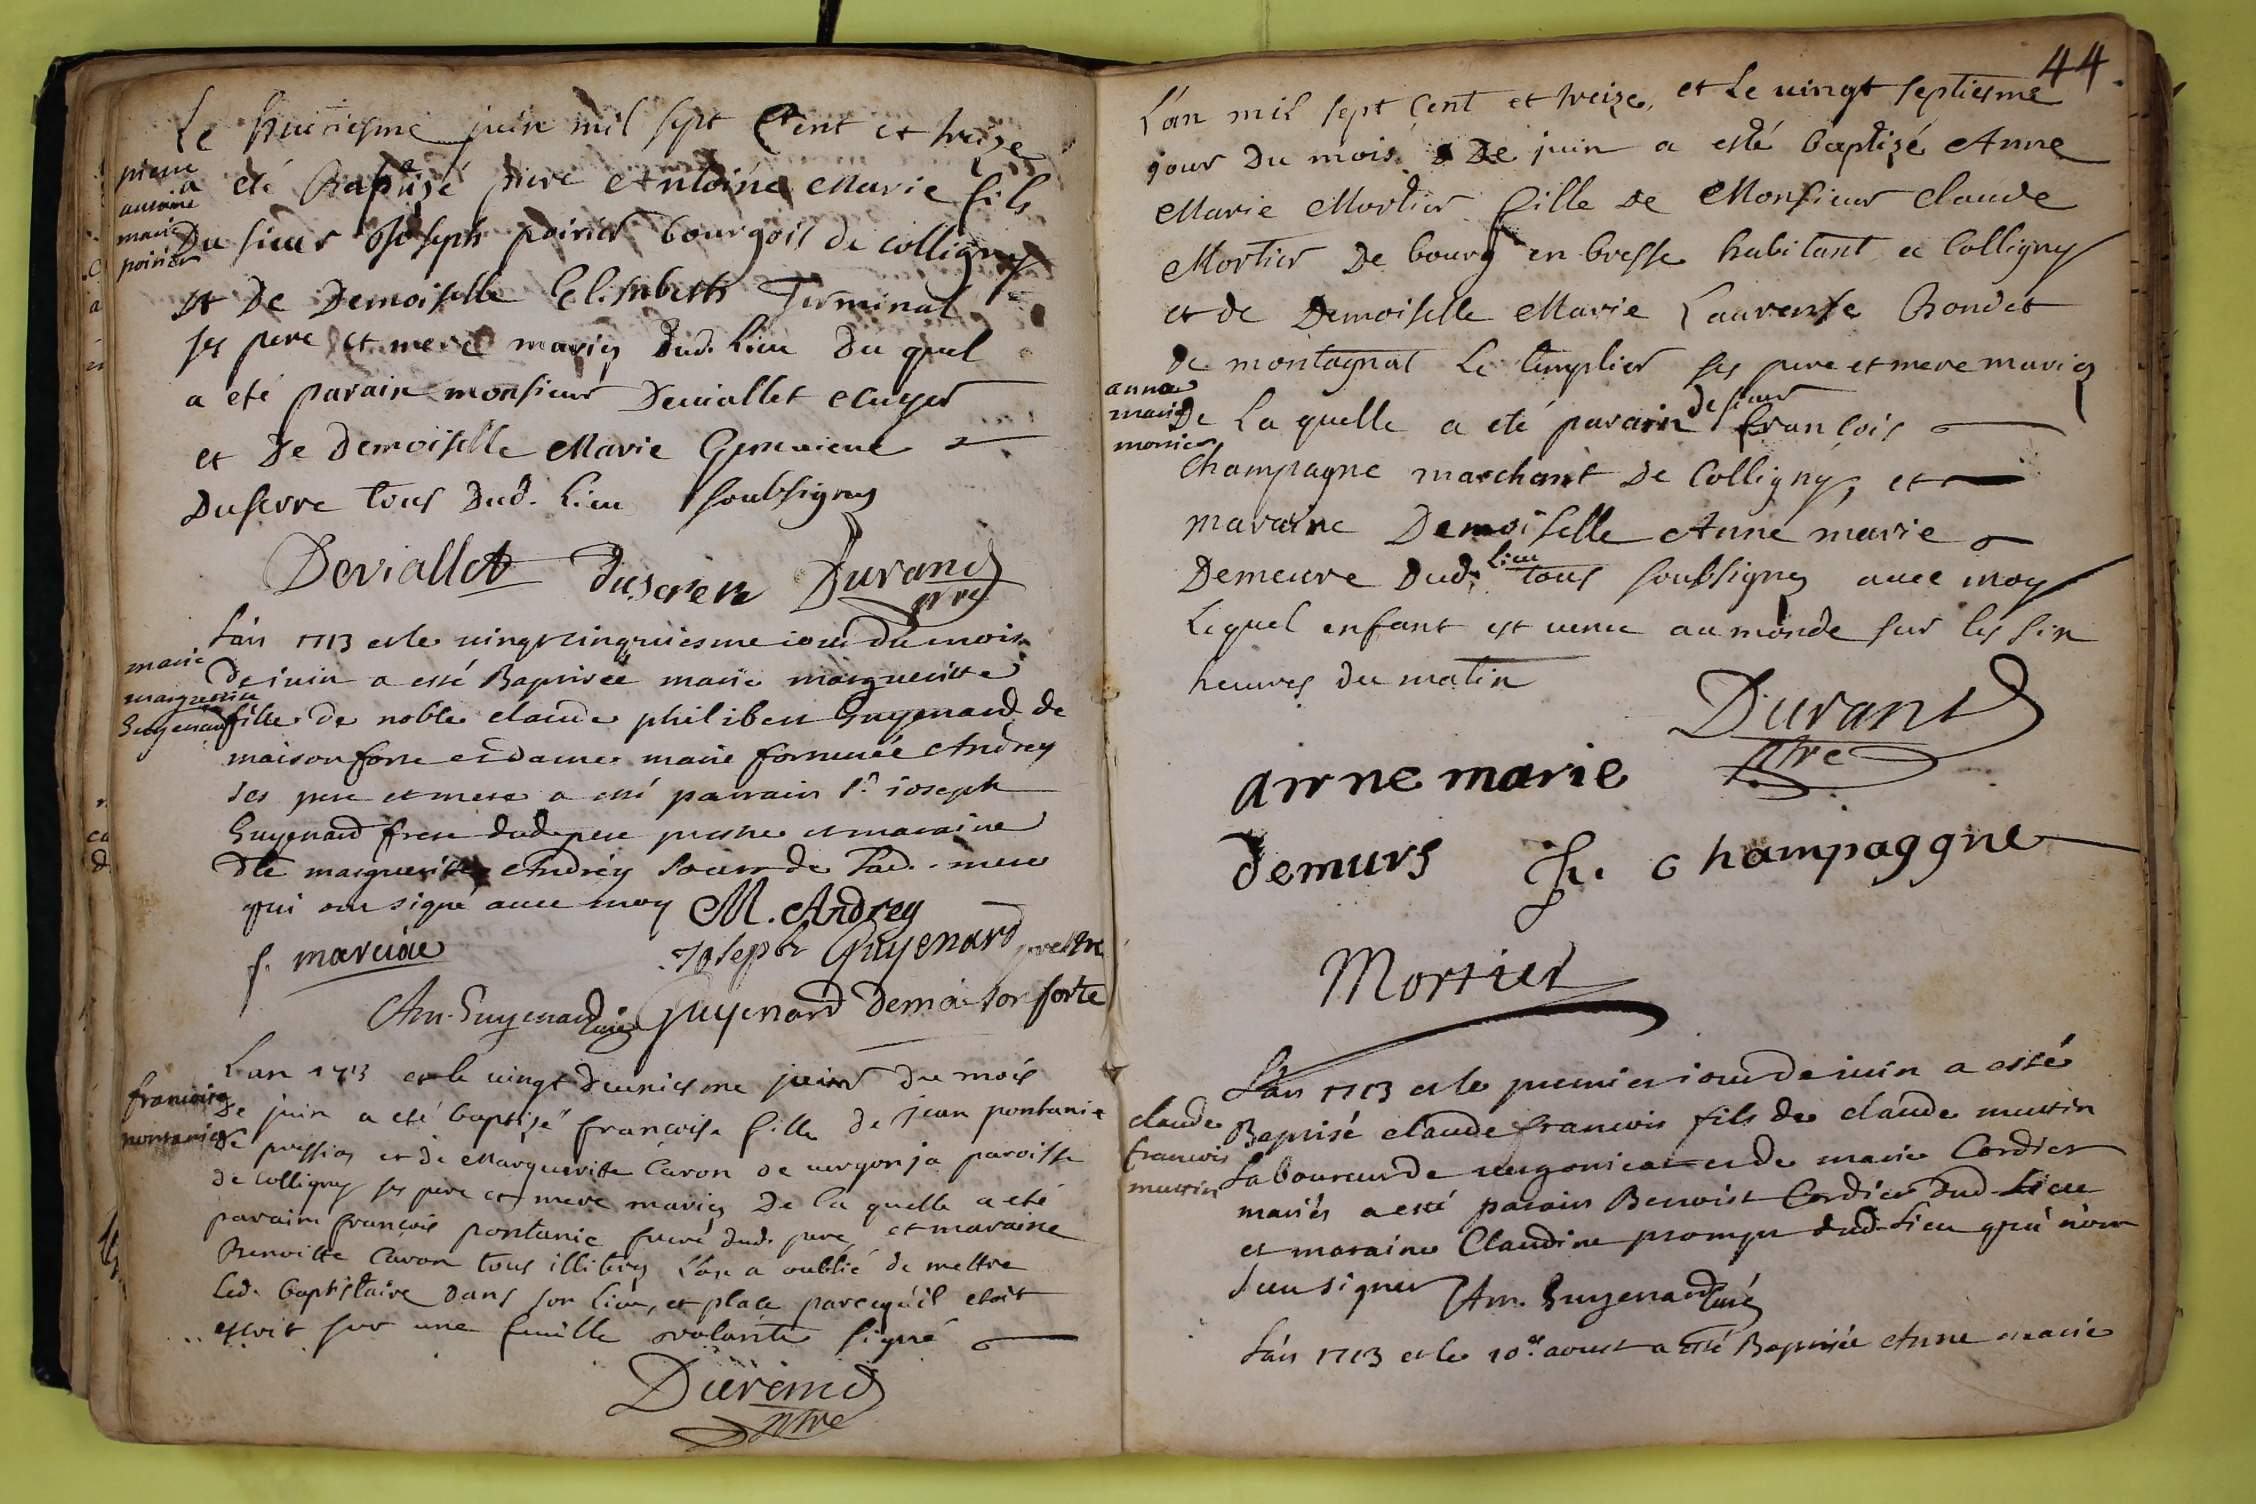 Le huitiesme juin mil sept Cent et treize
pierre
antoine
marie
poirier
a eté Baptizé pierre Antoine Marie fils
Du sieur Joseph poirier bourgois de colligny
et De Demoiselle Elisabeth Terminal
ses pere et mere mariez Dud. Lieu Du quel
a eté parain monsieur Deviallet escuyer
et De Demoiselle Marie Genevieve
Duserre tous Dud. Lieu soubsignez
Deviallet Duserere Durand
ptre
marie
marguerite
Guyenard
L'an 1713 et le vingt cinquiesme iour du mois
de iuin a esté Baptisée marie margueritte
fille de noble claude philibert Guyenard de
maisonforte et dame marie Andrey
ses pere et mere a esté parrain Sr ioseph
Guyenard frere dud. pere prestre et maraine
Dlle marguerite Andrey soeur de lad. mere
qui ont signé avec moy M. Andrey
f. Joseph Guyenard prestre
Am. Guyenard curé Guyenard Demaisonforte
francoise
pontanie
L'an 1713 et le vingt deuxiesme jour du mois
de juin a eté baptizé francoise fille de jean pontanie
de pressia et de Margueritte Caron de vergonja paroisse
de colligny ses pere et mere mariez De la quelle a eté
parain françois pontanie frere dud. pere et maraine
Benoitte Caron tous illiterez L'on a oublié de mettre
Led. baptistaire Dans son Lieu, et place parcequ'il etoit
escrit sur une feuille volante signé
Durand
ptre
44.
L'an mil sept Cent et treize, et Le vingt septiesme
jour Du mois De juin a esté baptizé Anne
Marie Mortier fille de Monsieur Claude
Mortier De bourg en bresse habitant a Colligny
et de Demoiselle Marie Laurense Bondet
De montagnat Le templier ses pere et mere mariez
anne
marie
mortier
De La quelle a eté parain de sieur françois
Champagne marchant De Colligny, et
maraine Demoiselle Anne marie
Demeure Dud. Lieu tous soubsignez avec moy
Lequel enfant est venu au monde sur les six
heures du matin
Durand
ptre
anne marie
demurs f. champaggne
Mortier
claude
francois
L'an 1713 et le premier iour de iuin a esté
Baptisé claude francois fils de claude
Laboureur de et de marie Cordier
mariés a esté parain Benoist Cordier dud. Lieu
et maraine Claudine dud. Lieu qui n'ont
sceu signer Am. Guyenard curé
L'an 1713 et le 10e aoust a esté Baptisée Anne marie